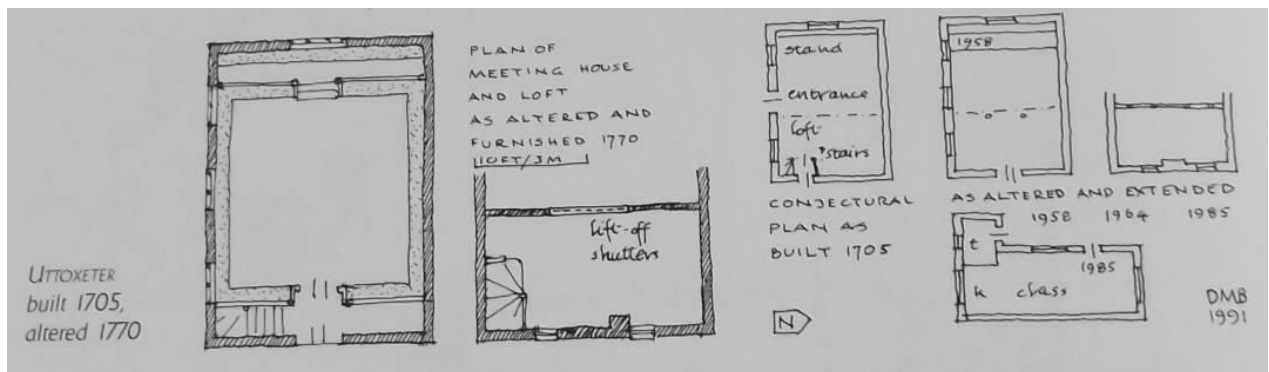 UTTOXETER
built 1705,
altered 1770
PLAN OF
MEETING HOUSE
AND LOFT
AS ALTERED AND
FURNISHED 1770
10FT/3M
lift-off
shutters
stand
entrance
loft
stairs
CONJECTURAL
PLAN AS
BUILT 1705
N
1958
AS ALTERED AND EXTENDED
1958 1964 1985
t
1985
k class
DMB
1991